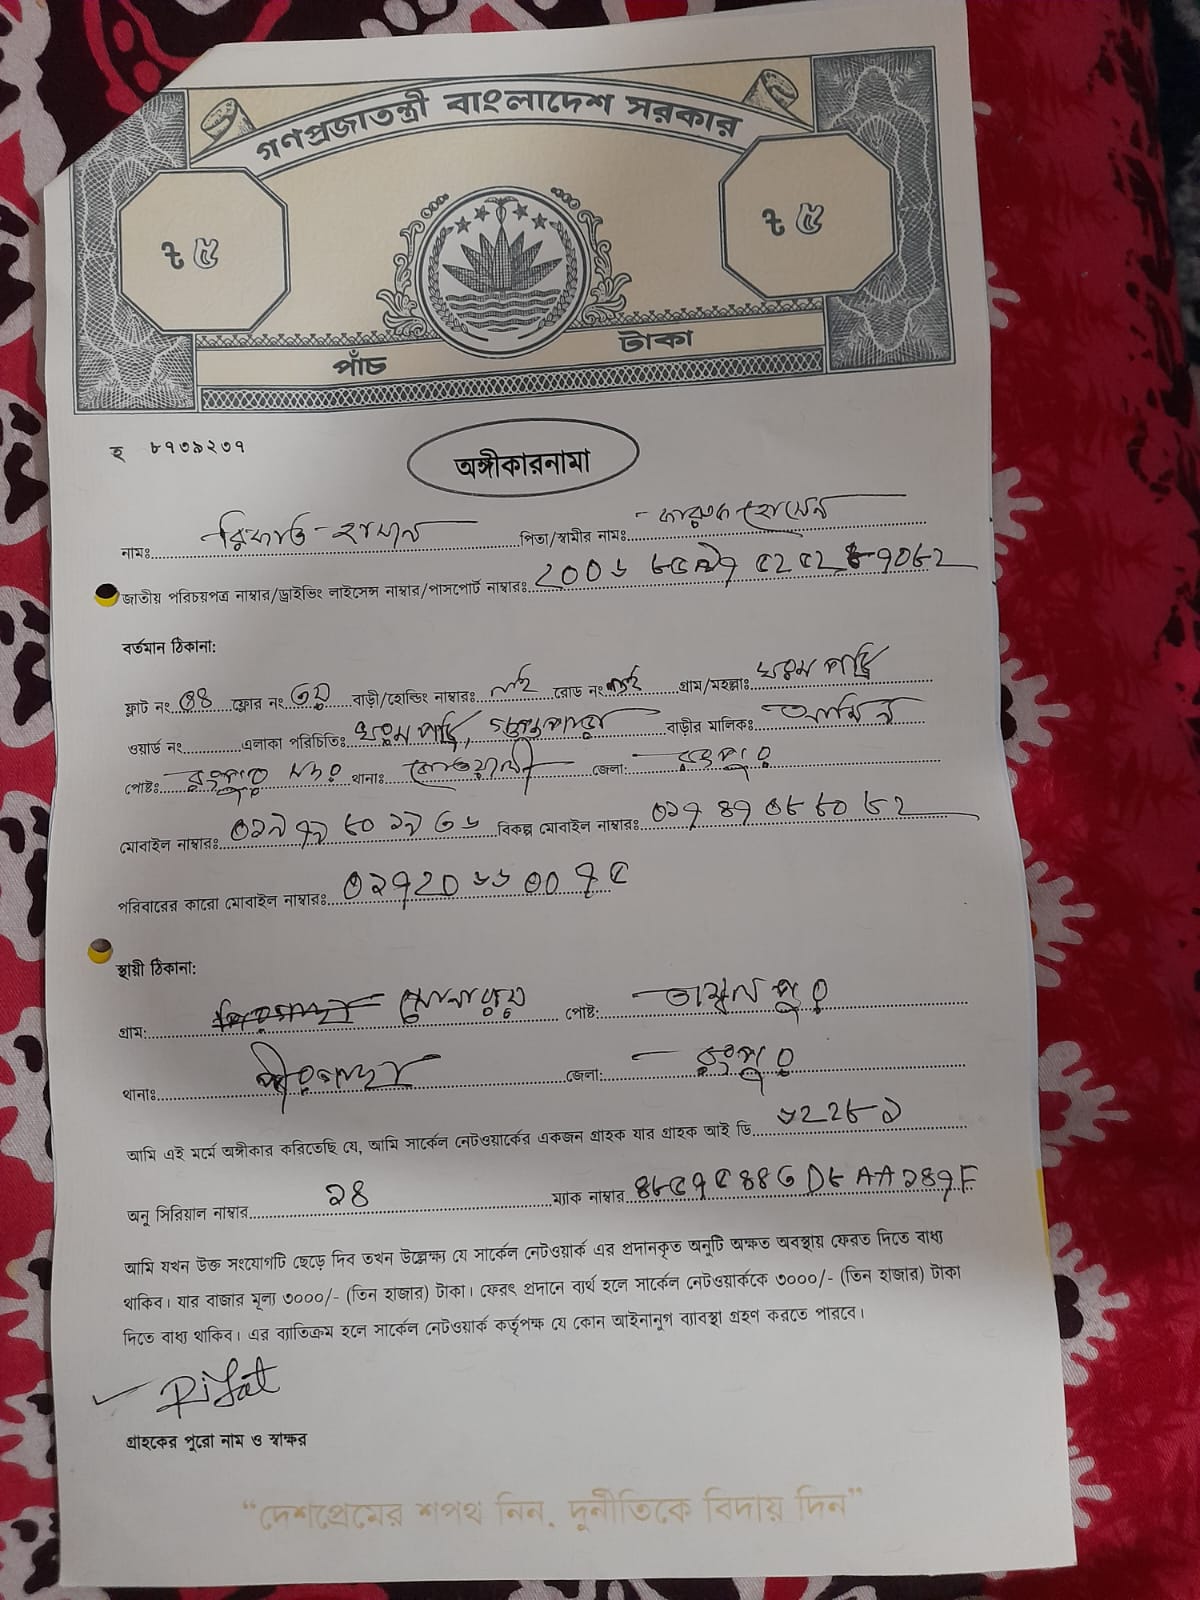 গণপ্রজাতন্ত্রী বাংলাদেশ সরকার
৳ ৫
৳ ৫
পাঁচ
টাকা
হ ৮৭৩৯২৩৭
অঙ্গীকারনামা
নামঃ রিফাত হাসান পিতা/স্বামীর নামঃ ফারুক হোসেন
জাতীয় পরিচয়পত্র নাম্বার/ড্রাইভিং লাইসেন্স নাম্বার/পাসপোর্ট নাম্বারঃ
বর্তমান ঠিকানা:
ফ্লাট নং ০৪ ফ্লোর নং ৩য় বাড়ী/হোল্ডিং নাম্বারঃ নাই রোড নং নাই গ্রাম/মহল্লাঃ
ওয়ার্ড নং এলাকা পরিচিতিঃ বাড়ীর মালিকঃ
পোষ্টঃ রংপুর সদর থানাঃ কোতয়ালী জেলা: রংপুর
মোবাইল নাম্বারঃ বিকল্প মোবাইল নাম্বারঃ
পরিবারের কারো মোবাইল নাম্বারঃ
স্থায়ী ঠিকানা:
গ্রাম: পোষ্ট:
থানাঃ পীরগাছা জেলা: রংপুর
আমি এই মর্মে অঙ্গীকার করিতেছি যে, আমি সার্কেল নেটওয়ার্কের একজন গ্রাহক যার গ্রাহক আই ডি
অনু সিরিয়াল নাম্বার ১৪ ম্যাক নাম্বার
আমি যখন উক্ত সংযোগটি ছেড়ে দিব তখন উল্লেক্ষ্য যে সার্কেল নেটওয়ার্ক এর প্রদানকৃত অনুটি অক্ষত অবস্থায় ফেরত দিতে বাধ্য
থাকিব। যার বাজার মূল্য ৩০০০/- (তিন হাজার) টাকা। ফেরৎ প্রদানে ব্যর্থ হলে সার্কেল নেটওয়ার্ককে ৩০০০/- (তিন হাজার) টাকা
দিতে বাধ্য থাকিব। এর ব্যাতিক্রম হলে সার্কেল নেটওয়ার্ক কর্তৃপক্ষ যে কোন আইনানুগ ব্যাবস্থা গ্রহণ করতে পারবে।
Rifat
গ্রাহকের পুরো নাম ও স্বাক্ষর
“দেশপ্রেমের শপথ নিন, দুর্নীতিকে বিদায় দিন”